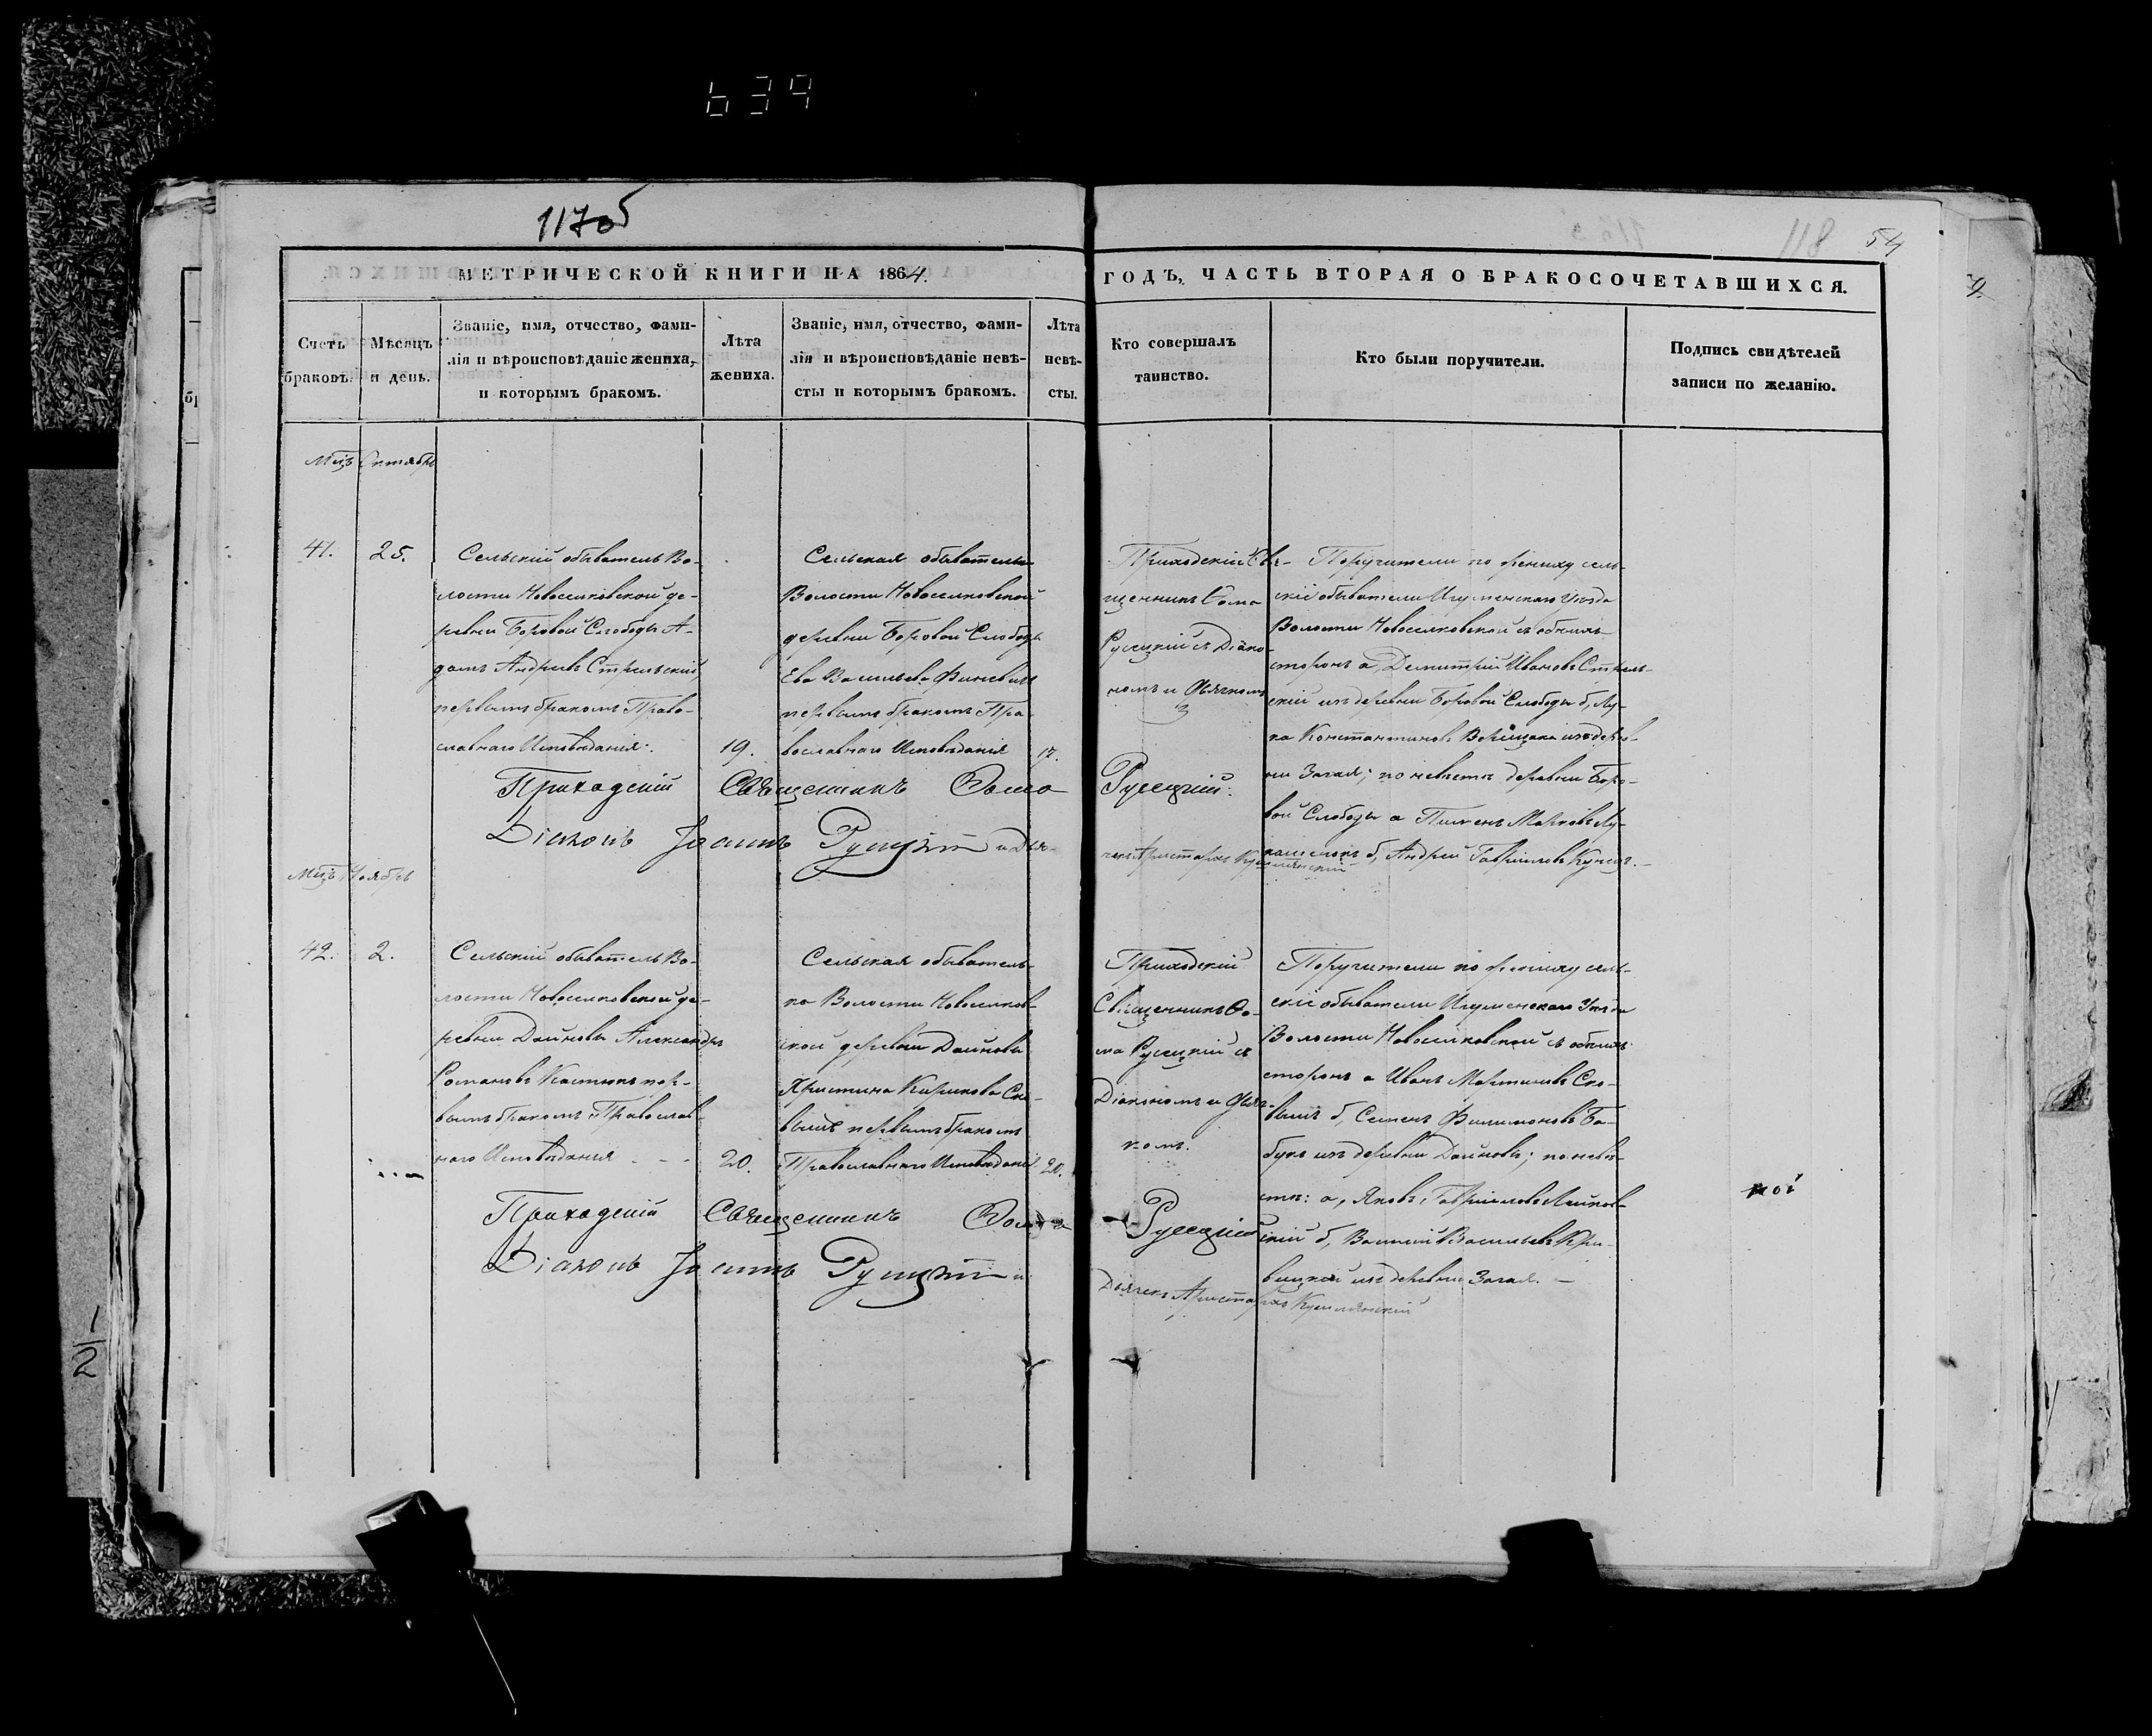 639
117об
118 54
МЕТРИЧЕСКОЙ КНИГИ НА 1864. ГОДЪ, ЧАСТЬ ВТОРАЯ О БРАКОСОЧЕТАВШИХСЯ.
Счетъ
браковъ.
Мѣсяцъ
и день.
Званіе, имя, отчество, фами-
лія и вѣроисповѣданіе жениха,
и которымъ бракомъ.
Лѣта
жениха.
Званіе, имя, отчество, фами-
лія и вѣроисповѣданіе невѣ-
сты и которымъ бракомъ.
Лѣта
невѣ-
сты.
Кто совершалъ
таинство.
Кто были поручители.
Подпись свидѣтелей
записи по желанію.
Мцъ Октябрь
41.
25.
Сельскій обыватель Во-
лости Новоселковской де-
ревни Боровой Слободы А-
дамъ Андреевъ Стрельскій
первымъ бракомъ Право-
славнаго Исповѣданія.
19.
Сельская обывателька
Волости Новоселковской
деревни Боровой Слободы
Ева Васильева Финевичъ
первымъ бракомъ Пра-
вославнаго Исповѣданія
17.
Приходскій Свя-
щенникъ Ѳома
Русецкій съ Діако-
номъ и Дьячкомъ
Поручители по жениху сель-
скіе обыватели Игуменскаго Уѣзда
Волости Новоселковской съ обоихъ
сторонъ а, Димитрій Ивановъ Стрель-
скій изъ деревни Боровой Слободы б, Лу-
ка Константиновъ Верещака изъ дерев-
ни Загая; по невѣстѣ деревни Боро-
вой Слободы а Пименъ Марковъ Лу-
б, Андрей Гавриловъ
Приходскій Священникъ Ѳома Русецкій.
Діаконъ Іоаннъ Русецкій и Дья-
чекъ Аристархъ
Мцъ Ноябрь
42.
2.
Сельскій обыватель Во-
лости Новоселковской де-
ревни Дайновы Александръ
Романовъ Костюкъ пер-
вымъ бракомъ Православ-
наго Исповѣданія
20.
Сельская обыватель-
ка Волости Новоселков-
ской деревни Дайновы
Христина Карпова Ско-
вышъ первымъ бракомъ
Православнаго Исповѣданія
20.
Приходскій
Священникъ Ѳо-
ма Русецкій съ
Діакономъ и Дьяч-
комъ.
Поручители по жениху сель-
скіе обыватели Игуменскаго Уѣзда
Волости Новоселковской съ обоихъ
сторонъ а Иванъ Мартиновъ Ско-
вышъ б, Семенъ Филимоновъ Ба-
букъ изъ деревни Дайновы; по невѣ-
стѣ: а, Яковъ Гавриловъ
б, Василій Васильевъ Кри-
вицкій изъ деревни Загая.
Приходскій Священникъ Ѳома Русецкій
Діаконъ Іоаннъ Русецкій и
Дьячекъ Аристархъ
1/2